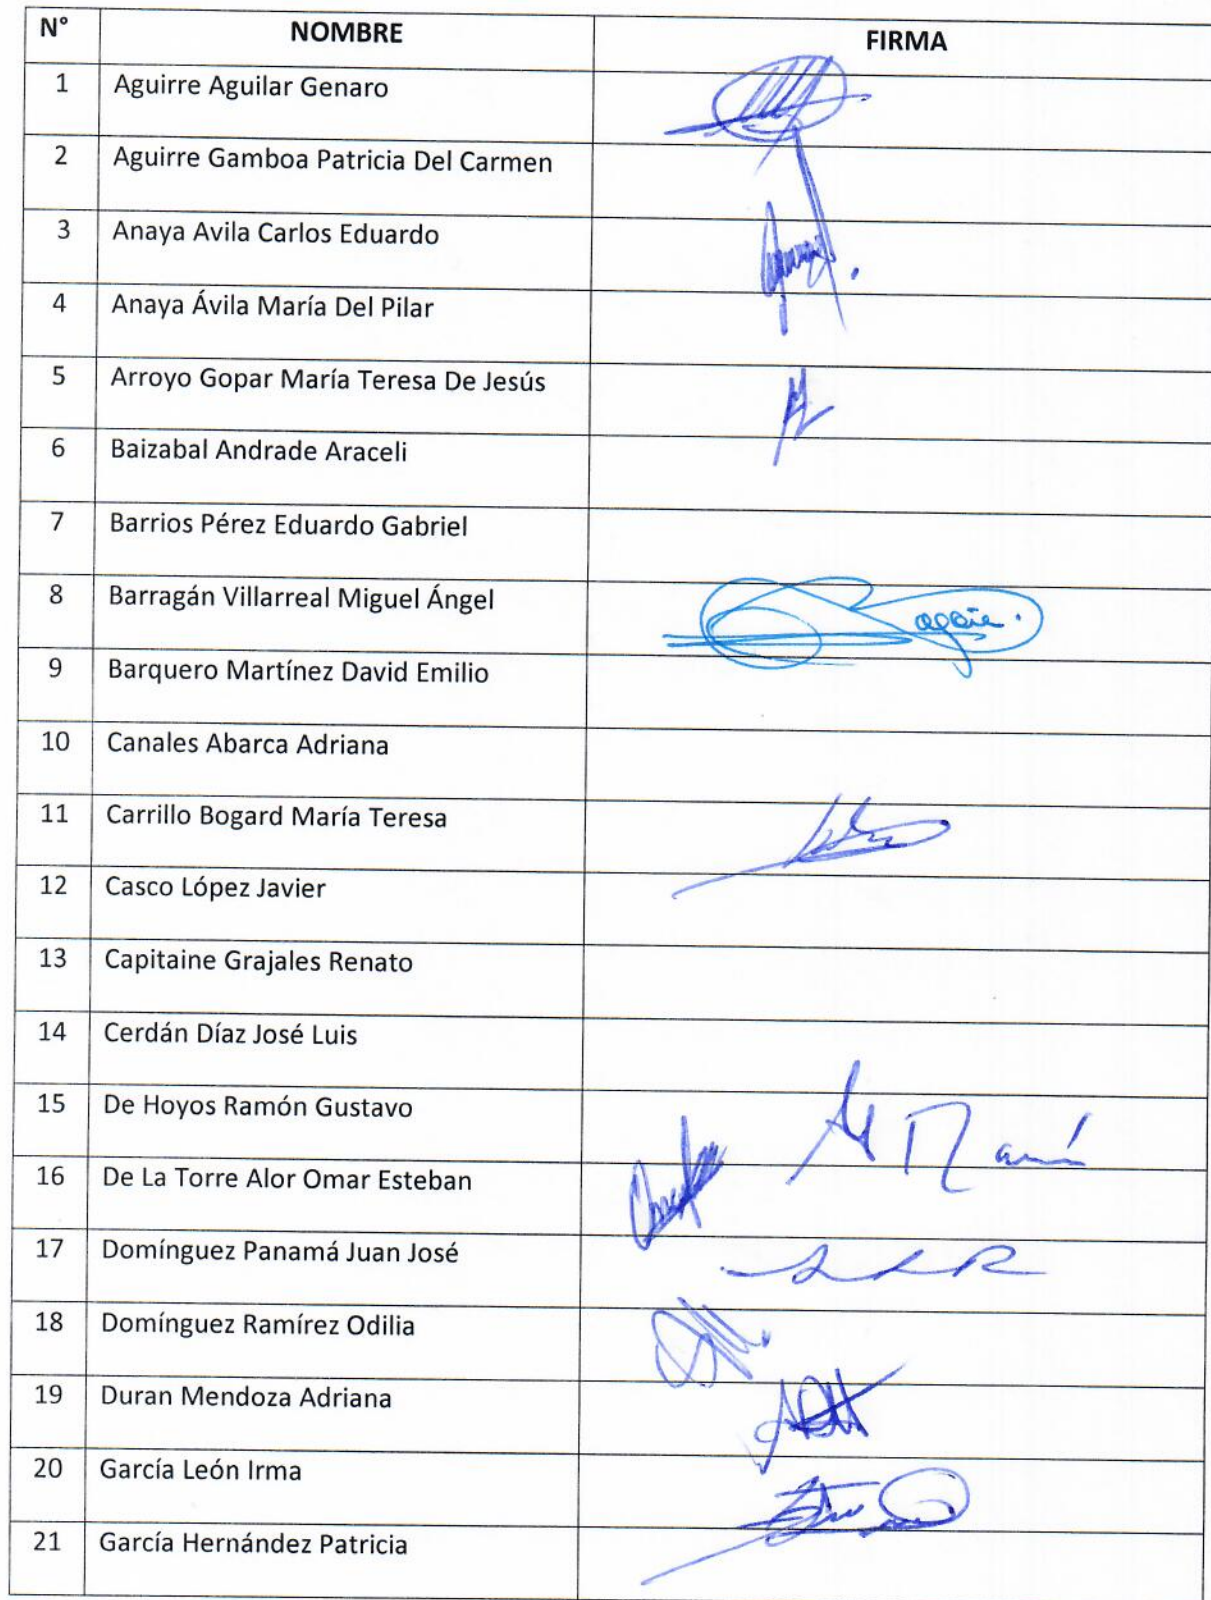 N° NOMBRE FIRMA
1 Aguirre Aguilar Genaro
2 Aguirre Gamboa Patricia Del Carmen
3 Anaya Avila Carlos Eduardo
4 Anaya Ávila María Del Pilar
5 Arroyo Gopar María Teresa De Jesús
6 Baizabal Andrade Araceli
7 Barrios Pérez Eduardo Gabriel
8 Barragán Villarreal Miguel Ángel
9 Barquero Martínez David Emilio
10 Canales Abarca Adriana
11 Carrillo Bogard María Teresa
12 Casco López Javier
13 Capitaine Grajales Renato
14 Cerdán Díaz José Luis
15 De Hoyos Ramón Gustavo
16 De La Torre Alor Omar Esteban
17 Domínguez Panamá Juan José
18 Domínguez Ramírez Odilia
19 Duran Mendoza Adriana
20 García León Irma
21 García Hernández Patricia